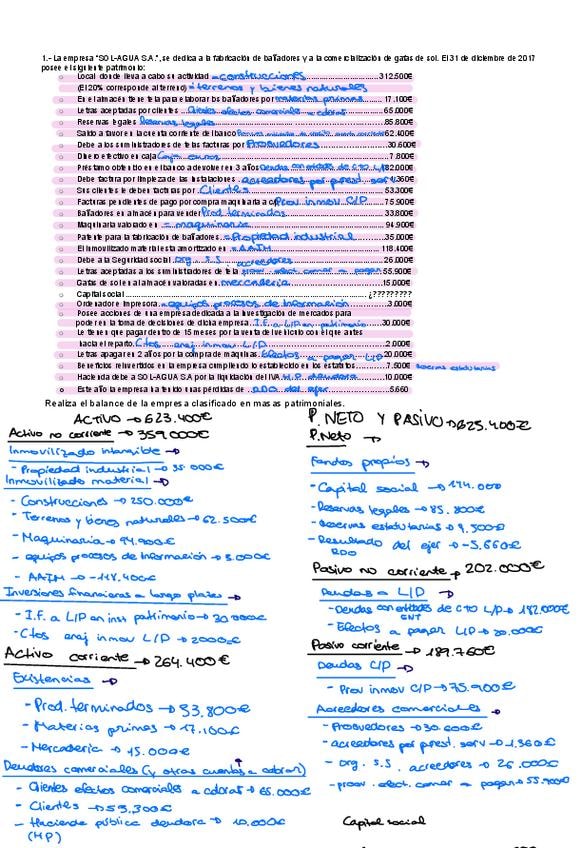 1.- La empresa "SOL-AGUA S.A.", se dedica a la fabricación de bañadores y a la comercialización de gafas de sol. El 31 de diciembre de 2017
posee el siguiente patrimonio:
Local donde lleva a cabo su actividad construcciones 312.500€
(El 20% corresponde al terreno) terrenos y bienes naturales
En el almacén tiene tela para elaborar los bañadores por materias primas 17.100€
Letras aceptadas por clientes Clientes efectos comerciales a cobrar 65.000€
Reservas legales Reservas legales 85.800€
Saldo a favor en la cuenta corriente del banco 62.400€
Debe a los suministradores de telas facturas por Proovedores 30.600€
Dinero efectivo en caja Caja, euros 7.800€
Préstamo obtenido en el banco a devolver en 3 años Deudas con entidades de cto L/P 182.000€
Debe factura por limpieza de las instalaciones acreedores por prest. serv 1.360€
Sus clientes le deben facturas por Clientes 53.300€
Facturas pendientes de pago por compra maquinaria a c/p Prov inmov C/P 75.900€
Bañadores en almacén para vender Prod. terminados 33.800€
Maquinaria valorado en = maquinaria 94.900€
Patente para la fabricación de bañadores Propiedad industrial 35.000€
El inmovilizado material esta amortizado en AAIM 118.400€
Debe a la Seguridad social org. S.S. acreedores 26.000€
Letras aceptadas a los suministradores de tela prov. efect. comer a pagar 55.900€
Gafas de sol en al almacén valoradas en mercadería 15.000€
Capital social ¿?????????
Ordenador e Impresora equipos procesos de Información 3.000€
Posee acciones de una empresa dedicada a la investigación de mercados para
poder en la toma de decisiones de dicha empresa I.F. a L/P en patrimonio 30.000€
Le tienen que pagar dentro de 15 meses por la venta del vehículo con el que antes
hacía el reparto. Ctos enaj inmov L/P 2.000€
Letras a pagar en 2 años por la compra de maquinas. Efectos a pagar L/P 20.000€
Beneficios reinvertidos en la empresa cumpliendo lo establecido en los estatutos 7.500€ reservas estatutarias
Hacienda debe a SOL-AGUA S.A por la liquidación del IVA H.P. deudora 10.000€
Este año la empresa ha tenido unas pérdidas de RDO del ejer 5.660
Realiza el balance de la empresa clasificado en masas patrimoniales.
ACTIVO → 623.400€
Activo no corriente → 359.000€
Inmovilizado intangible →
- Propiedad industrial → 35.000€
Inmovilizado material →
- Construcciones → 250.000€
- Terrenos y bienes naturales → 62.500€
- Maquinaria → 94.900€
- equipos procesos de Información → 3.000€
- AAIM → -118.400€
Inversiones financieras a largo plazo →
- I.F. a L/P en inst patrimonio → 30.000€
- Ctos enaj inmov L/P → 2000€
Activo corriente → 264.400€
Existencias →
- Prod. terminados → 33.800€
- Materias primas → 17.100€
- Mercadería → 15.000€
Deudores comerciales (y otras cuentas a cobrar)
- Clientes efectos comerciales a cobrar → 65.000€
- Clientes → 53.300€
- Hacienda pública deudora → 10.000€
(HP)
P. NETO Y PASIVO → 623.400€
P. Neto →
Fondos propios →
- Capital social → 174.000
- Reservas legales → 85.800€
- Reservas estatutarias → 7.500€
- Resultado del ejer → -5.660€
RDO
Pasivo no corriente → 202.000€
Deudas a L/P →
- Deudas con entidades de cto L/P → 182.000€
- Efectos a pagar L/P → 20.000€
Pasivo corriente → 189.760€
Deudas C/P →
- Prov inmov C/P → 75.900€
Acreedores comerciales →
- Proovedores → 30.600€
- acreedores por prest. serv → 1.360€
- org. S.S. acreedores → 26.000€
- proov. elect. comer a pagar → 55.900€
Capital social